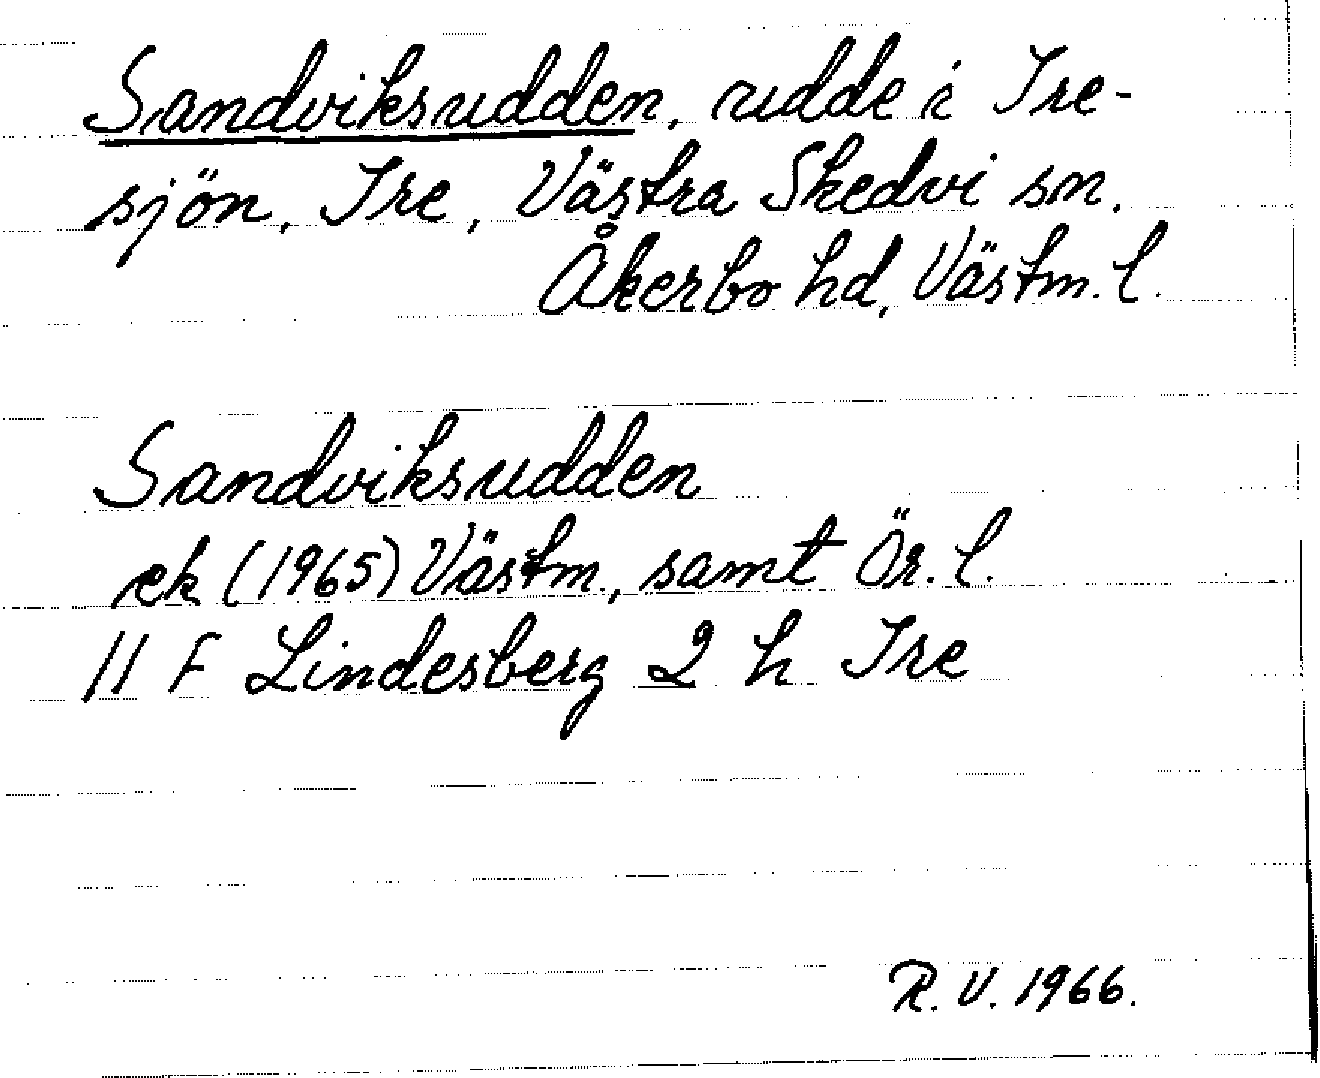 Sandviksudden, udde i Tre-
sjön, Tre, Västra Skedvi sn,
Åkerbo hd, Västm. l.
Sandviksudden
ek (1965) Västm., samt Ör. l.
11 F Lindesberg 2 h Tre
R. V. 1966.